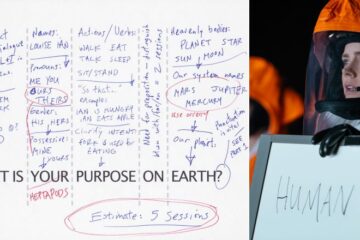 Names:
LOUISE IAN
Pronouns:
ME YOU
OURS
THEIRS
Gender:
HIS HERS
Possessive:
MINE
YOURS
HEPTAPODS
Actions/Verbs
WALK EAT
TALK SLEEP
SIT/STAND
"So that..."
example:
IAN IS HUNGRY
IAN EATS APPLE
Clarify intent
FORK USED for
EATING
Need for preposition
2 sessions
Heavenly bodies:
PLANET STAR
SUN MOON
Our system names
MARS JUPITER
MERCURY
Use orrery
Our planet
SEE
PART 1
T IS YOUR PURPOSE ON EARTH?
Estimate: 5 sessions
HUMAN